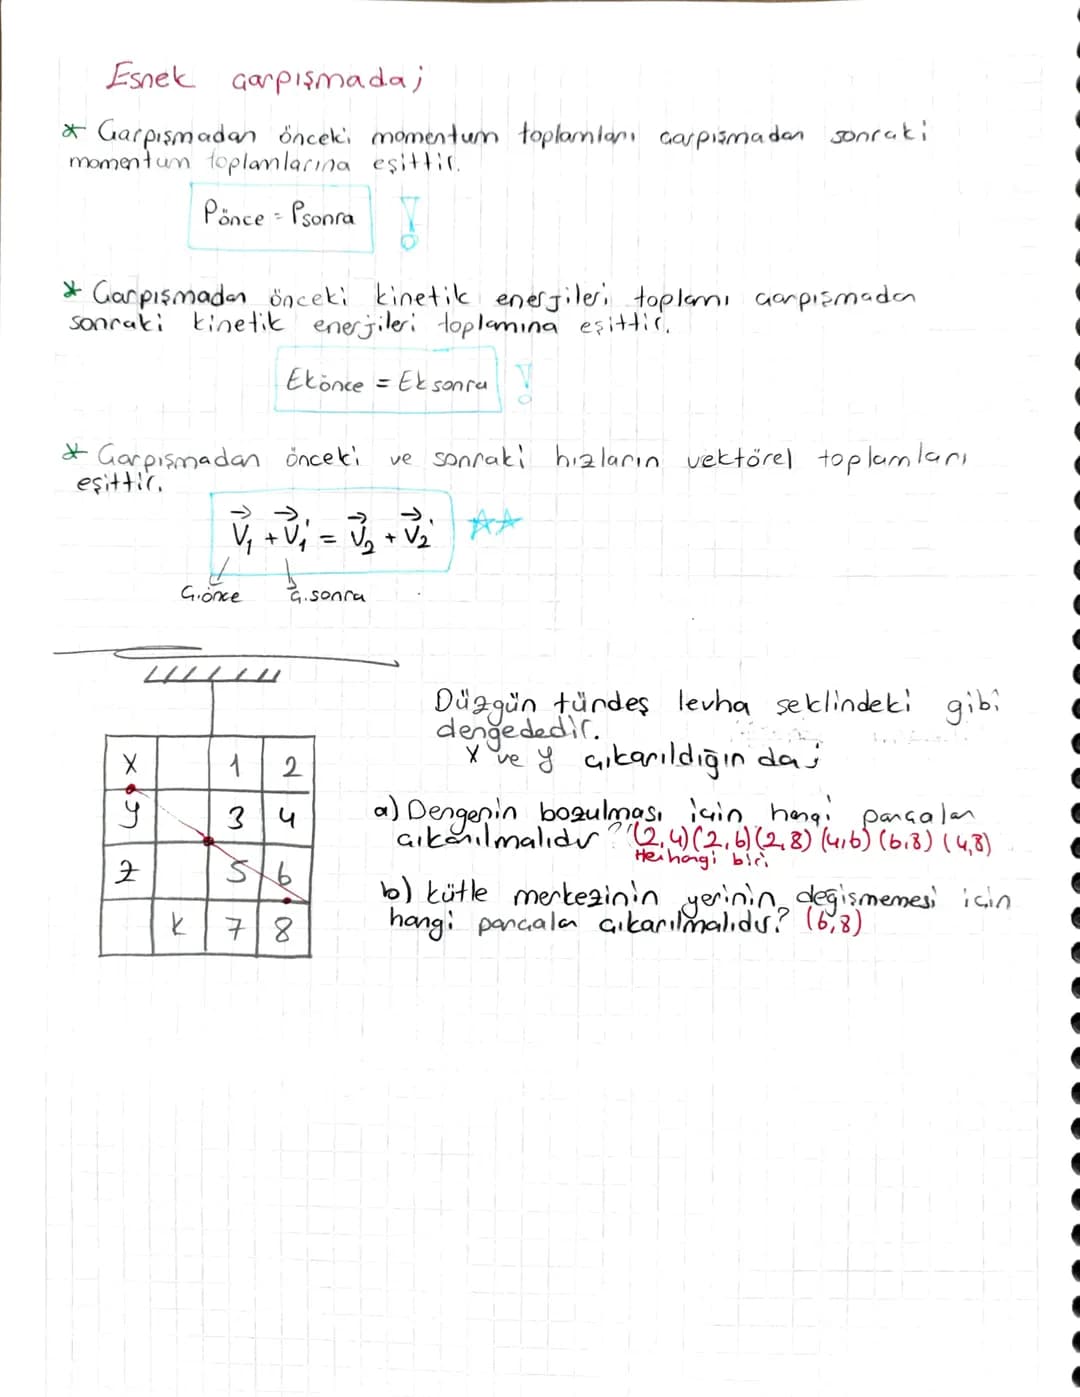 Esnek çarpışmada;
* Çarpışmadan önceki momentum toplamları çarpışmadan sonraki
momentum toplamlarına eşittir.
Pönce = Psonra !
* Çarpışmadan önceki kinetik enerjileri toplamı çarpışmadan
sonraki kinetik enerjileri toplamına eşittir.
Ekönce = Ek sonra !
* Çarpışmadan önceki ve sonraki hızların vektörel toplamları
eşittir.
V₁ + V₁' = V₂ + V₂'
Ç.önce Ç.sonra
Düzgün türdeş levha şeklindeki gibi
dengededir.
X ve y çıkarıldığın da;
X 1 2
y 3 4
Z 5 6
K 7 8
a) Dengenin bozulması için hangi parçalar
çıkarılmalıdır? (2,4) (2,6) (2,8) (4,6) (6,8) (4,8)
Herhangi biri
b) kütle merkezinin yerinin değişmemesi için
hangi parçalar çıkarılmalıdır? (6,8)